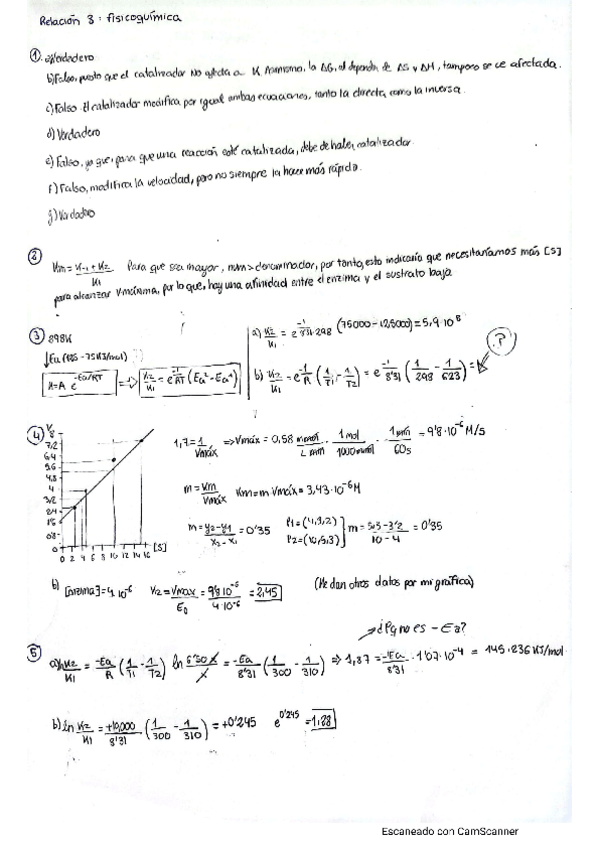 Relación 3: fisicoquímica
① a) Verdadero
b) Falso, puesto que el catalizador no afecta a K. Asimismo, la ΔG, al depender de ΔS y ΔH, tampoco se ve afectada.
c) Falso. El catalizador modifica por igual ambas ecuaciones, tanto la directa, como la inversa.
d) Verdadero
e) Falso, ya que, para que una reacción esté catalizada, debe de haber catalizador
f) Falso, modifica la velocidad, pero no siempre la hace más rápida.
g) Verdadero
② Km = K-1 + K2 / K1 Para que sea mayor, num > denominador, por tanto, esto indicaría que necesitaríamos más [S]
para alcanzar Vmáxima, por lo que, hay una afinidad entre el enzima y el sustrato baja
③ 298K
↓Ea (125 - 75 KJ/mol)
K = A e^-Ea/RT => K2/K1 = e^-1/RT (Ea² - Ea¹)
a) K2/K1 = e^-1/8'31·298 (75000 - 125000) = 5,9·10^8
b) K2/K1 = e^-1/R (1/T1 - 1/T2) = e^-1/8'31 (1/298 - 1/623) = ?
④ V
7,2
6,4
5,6
4,8
4
3,2
2,4
1,6
0,8
0
0 2 4 6 8 10 12 14 16 [S]
1,7 = 1/Vmáx => Vmáx = 0,58 mmol/L min · 1 mol/1000 mmol · 1 min/60s = 9'8·10^-6 M/s
m = Km/Vmáx Km = m Vmáx = 3,43·10^-6 M
m = y2 - y1 / x2 - x1 = 0'35 P1 = (4, 3,2) P2 = (10, 5,3) m = 5,3 - 3'2 / 10 - 4 = 0'35
b) [enzima] = 4·10^-6 V2 = Vmax/E0 = 9'8·10^-6 / 4·10^-6 = 2,45 (Me dan otros datos por mi gráfica)
→ ¿Pq no es -Ea?
⑤ a) ln K2/K1 = -Ea/R (1/T1 - 1/T2) ln 6'50 x/x = -Ea/8'31 (1/300 - 1/310) => 1,87 = -Ea/8'31 · 1'07·10^-4 = 145.236 KJ/mol
b) ln K2/K1 = +19,000/8'31 (1/300 - 1/310) = +0'245 e^0'245 = 1,28
Escaneado con CamScanner